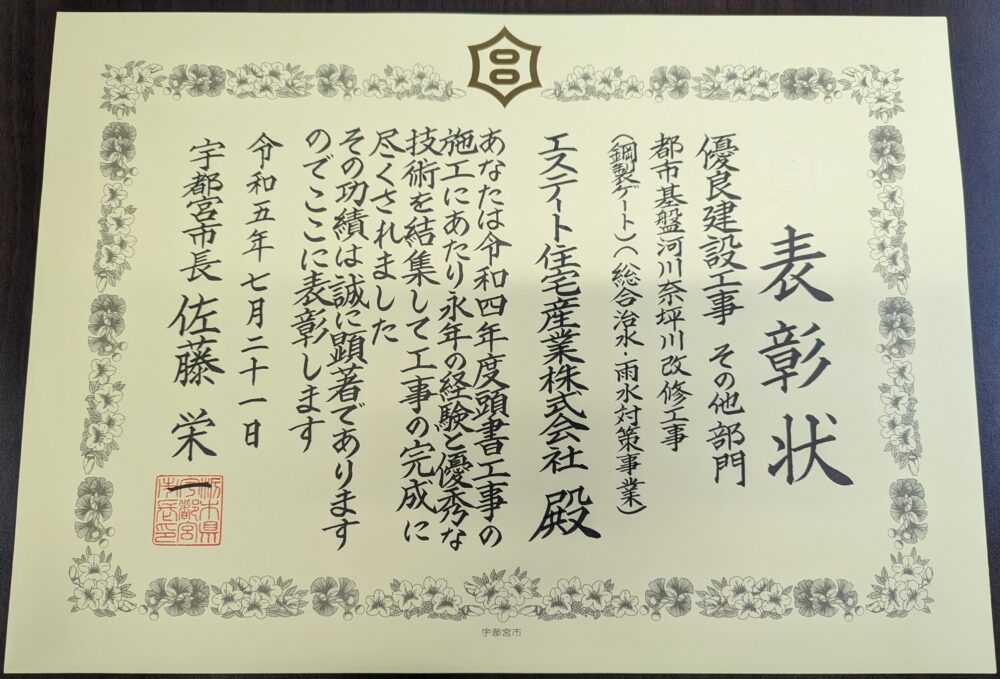 表彰状
優良建設工事 その他部門
都市基盤河川奈坪川改修工事
(鋼製ゲート)(総合治水・雨水対策事業)
エステート住宅産業株式会社 殿
あなたは令和四年度頭書工事の
施工にあたり永年の経験と優秀な
技術を結集して工事の完成に
尽くされました
その功績は誠に顕著であります
のでここに表彰します
令和五年七月二十一日
宇都宮市長 佐藤 栄一
栃木県
宇都宮
市長印
宇都宮市